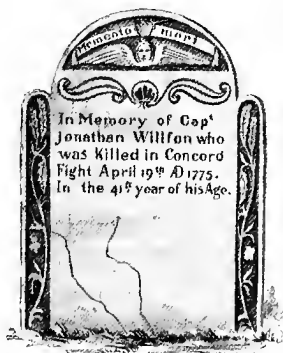 Memento mori
In Memory of Capᵗ
Jonathan Willſon who
was Killed in Concord
Fight April 19ᵗʰ AD 1775.
In the 41ſᵗ year of his Age.